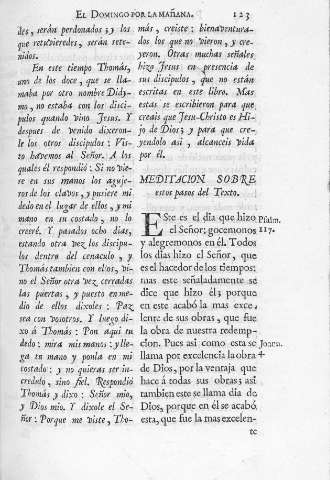 EL DOMINGO POR LA MAÑANA. 123
des, serán perdonados; y los
que retuvieredes, serán rete-
nidos.
En este tiempo Thomás,
uno de los doce, que se lla-
maba por otro nombre Didy-
mo, no estaba con los disci-
pulos quando vino Jesus. Y
despues de venido dixeron-
le los otros discipulos: Vis-
to havemos al Señor. A los
quales él respondió: Si no vie-
re en sus manos los aguje-
ros de los clavos, y pusiere mi
dedo en el lugar de ellos, y mi
mano en su costado, no lo
creeré. Y pasados ocho dias,
estando otra vez los discipu-
los dentro del cenaculo, y
Thomás tambien con ellos, vi-
no el Señor otra vez cerradas
las puertas, y puesto en me-
dio de ellos dixoles: Paz
sea con vosotros. Y luego di-
xo á Thomás: Pon aqui tu
dedo: mira mis manos: y lle-
ga tu mano y ponla en mi
costado: y no quieras ser in-
credulo, sino fiel. Respondió
Thomás y dixo: Señor mio,
y Dios mio. Y dixole el Se-
ñor: Porque me viste, Tho-
más, creiste: bienaventura-
dos los que no vieron, y cre-
yeron. Otras muchas señales
hizo Jesus en presencia de
sus discipulos, que no están
escritas en este libro. Mas
estas se escribieron para que
creais que Jesu-Christo es Hi-
jo de Dios; y para que cre-
yendolo asi, alcanceis vida
por él.
MEDITACION SOBRE
estos pasos del Texto.
ESte es el dia que hizo
el Señor; gocemonos
y alegremonos en él. Todos
los dias hizo el Señor, que
es el hacedor de los tiempos;
mas este señaladamente se
dice que hizo él; porque
en este acabó la mas exce-
lente de sus obras, que fue
la obra de nuestra redemp-
cion. Pues asi como esta se
llama por excelencia la obra
de Dios, por la ventaja que
hace á todas sus obras; asi
tambien este se llama dia de
Dios, porque en él se acabó
esta, que fue la mas excelen-
te
Psalm.
117.
Joann.
4